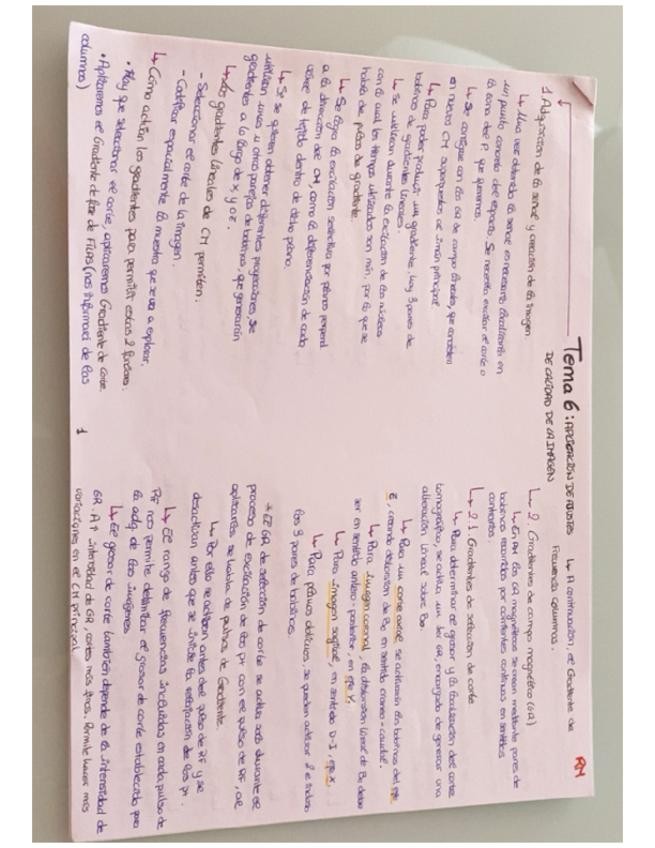 Tema 6: APLICACIÓN DE AJUSTES
DE CALIDAD DE LA IMAGEN
RM
1. Adquisición de la señal y creación de la imagen
↳ Una vez obtenida la señal es necesario localizarla en
un punto concreto del espacio. Se necesita excitar el corte o
la zona del P. que queremos.
↳ Se consigue con los GR de campo lineales, que consisten
en nuevos CM superpuestos al imán principal
↳ Para poder producir un gradiente, hay 3 pares de
bobinas de gradientes lineales.
↳ Se utilizan durante la excitación de los núcleos
con lo cual los tiempos utilizados son mín, por lo que se
habla de pulsos de gradiente.
↳ Se logra la excitación selectiva por planos perpend.
a la dirección del CM, como la diferenciación de cada
vóxel de tejido dentro de dicho plano.
↳ Si se quieren obtener diferentes proyecciones, se
utilizan unas u otras parejas de bobinas, que generarán
gradientes a lo largo de x y o z.
↳ Los gradientes lineales de CM permiten:
- Seleccionar el corte de la imagen.
- Codificar espacialmente la muestra que se va a explorar.
↳ Cómo actúan los gradientes para permitir estas 2 funciones
• Hay que seleccionar el corte, aplicaremos Gradiente de corte.
• Aplicaremos el Gradiente de fase de Filas (nos informará de las
columnas)
1
↳ A continuación, el Gradiente de
Frecuencia columnas.
↳ 2. Gradientes de campo magnético (GR)
↳ En RM los GR magnéticos se crean mediante pares de
bobinas recorridos por corrientes continuas en sentidos
contrarios.
↳ 2.1. Gradientes de selección de corte
↳ Para determinar el grosor y la localización del corte
tomográfico, se activa un 1er GR, encargado de generar una
alteración lineal sobre B0.
↳ Para un corte axial se activarán las bobinas del eje
z, creando distorsión de B0 en sentido craneo-caudal.
↳ Para imagen coronal, la distorsión lineal de B0 debe
ser en sentido antero-posterior, en eje Y.
↳ Para imagen sagital, en sentido D-I, eje X.
↳ Para planos oblicuos, se pueden activar 2 e incluso
los 3 pares de bobinas.
* El GR de selección de corte se activa solo durante el
proceso de excitación de los p+ con el pulso de RF, al
aplicarlos se habla de pulsos de Gradiente.
↳ Por ello se activan antes del pulso de RF y se
desactivan antes que se inicie la relajación de los p+.
↳ El rango de frecuencias incluidas en cada pulso de
RF nos permite delimitar el grosor de corte establecido para
la adq. de las imágenes.
↳ El grosor de corte también depende de la intensidad de
GR. A ↑ intensidad de GR, cortes más finos. Permite hacer más
variaciones en el CM principal.